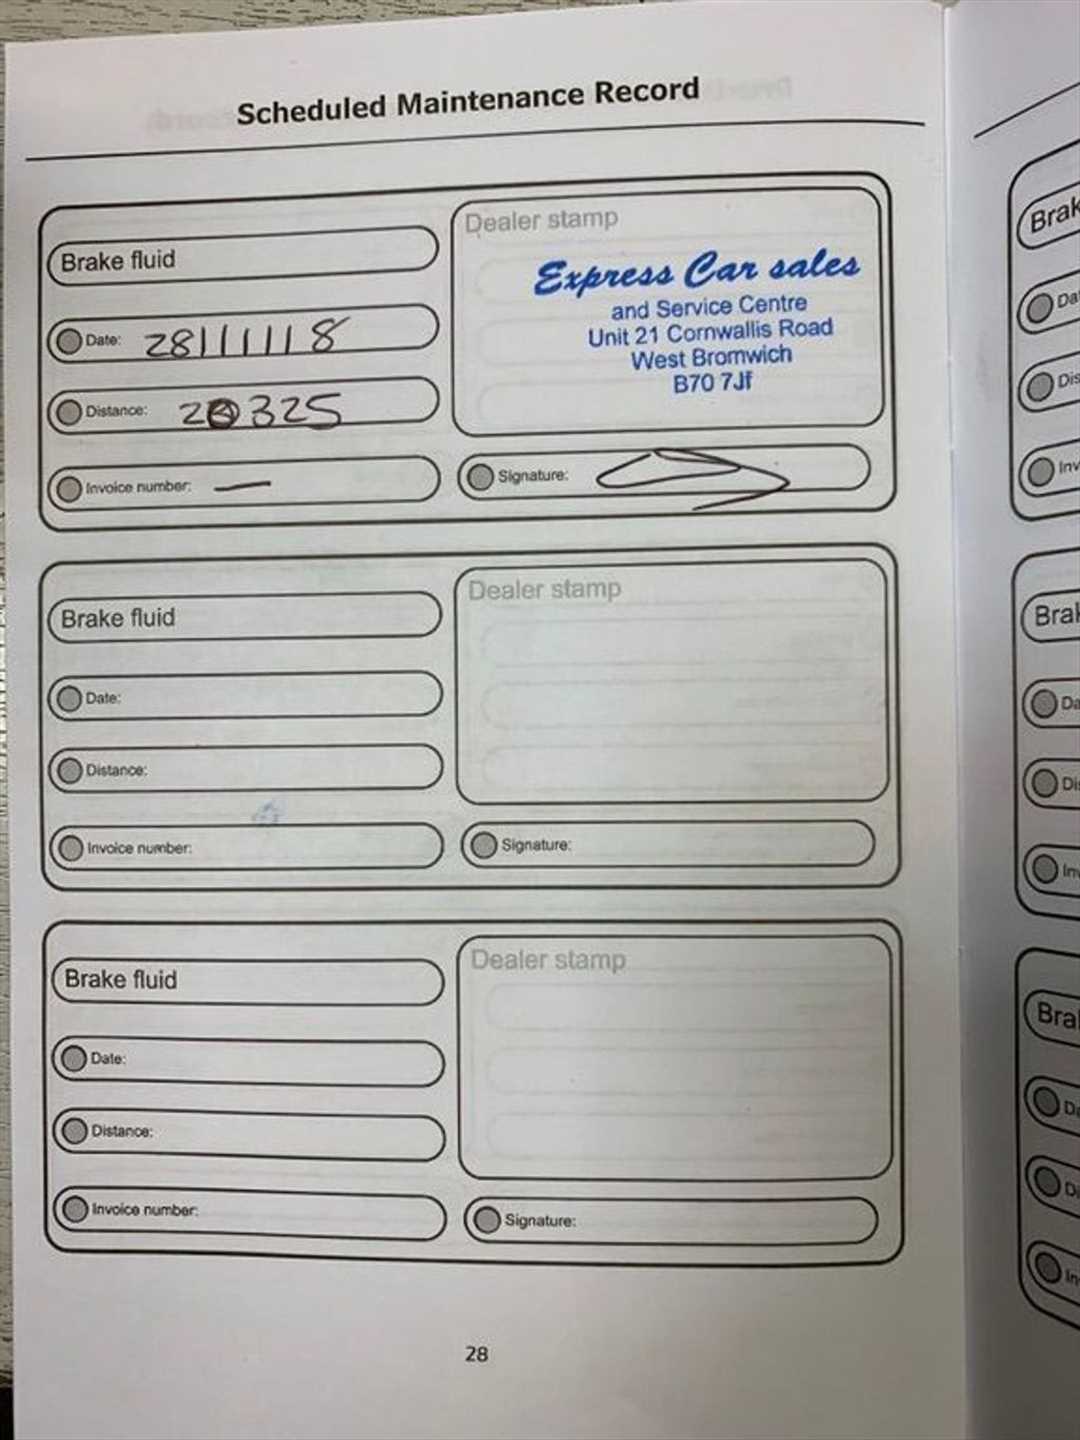 Scheduled Maintenance Record
Brake fluid
Date: 28/11/18
Distance:
Invoice number: —
Dealer stamp
Express Car sales
and Service Centre
Unit 21 Cornwallis Road
West Bromwich
B70 7Jf
Signature:
Brake fluid
Date:
Distance:
Invoice number:
Dealer stamp
Signature:
Brake fluid
Date:
Distance:
Invoice number:
Dealer stamp
Signature:
28